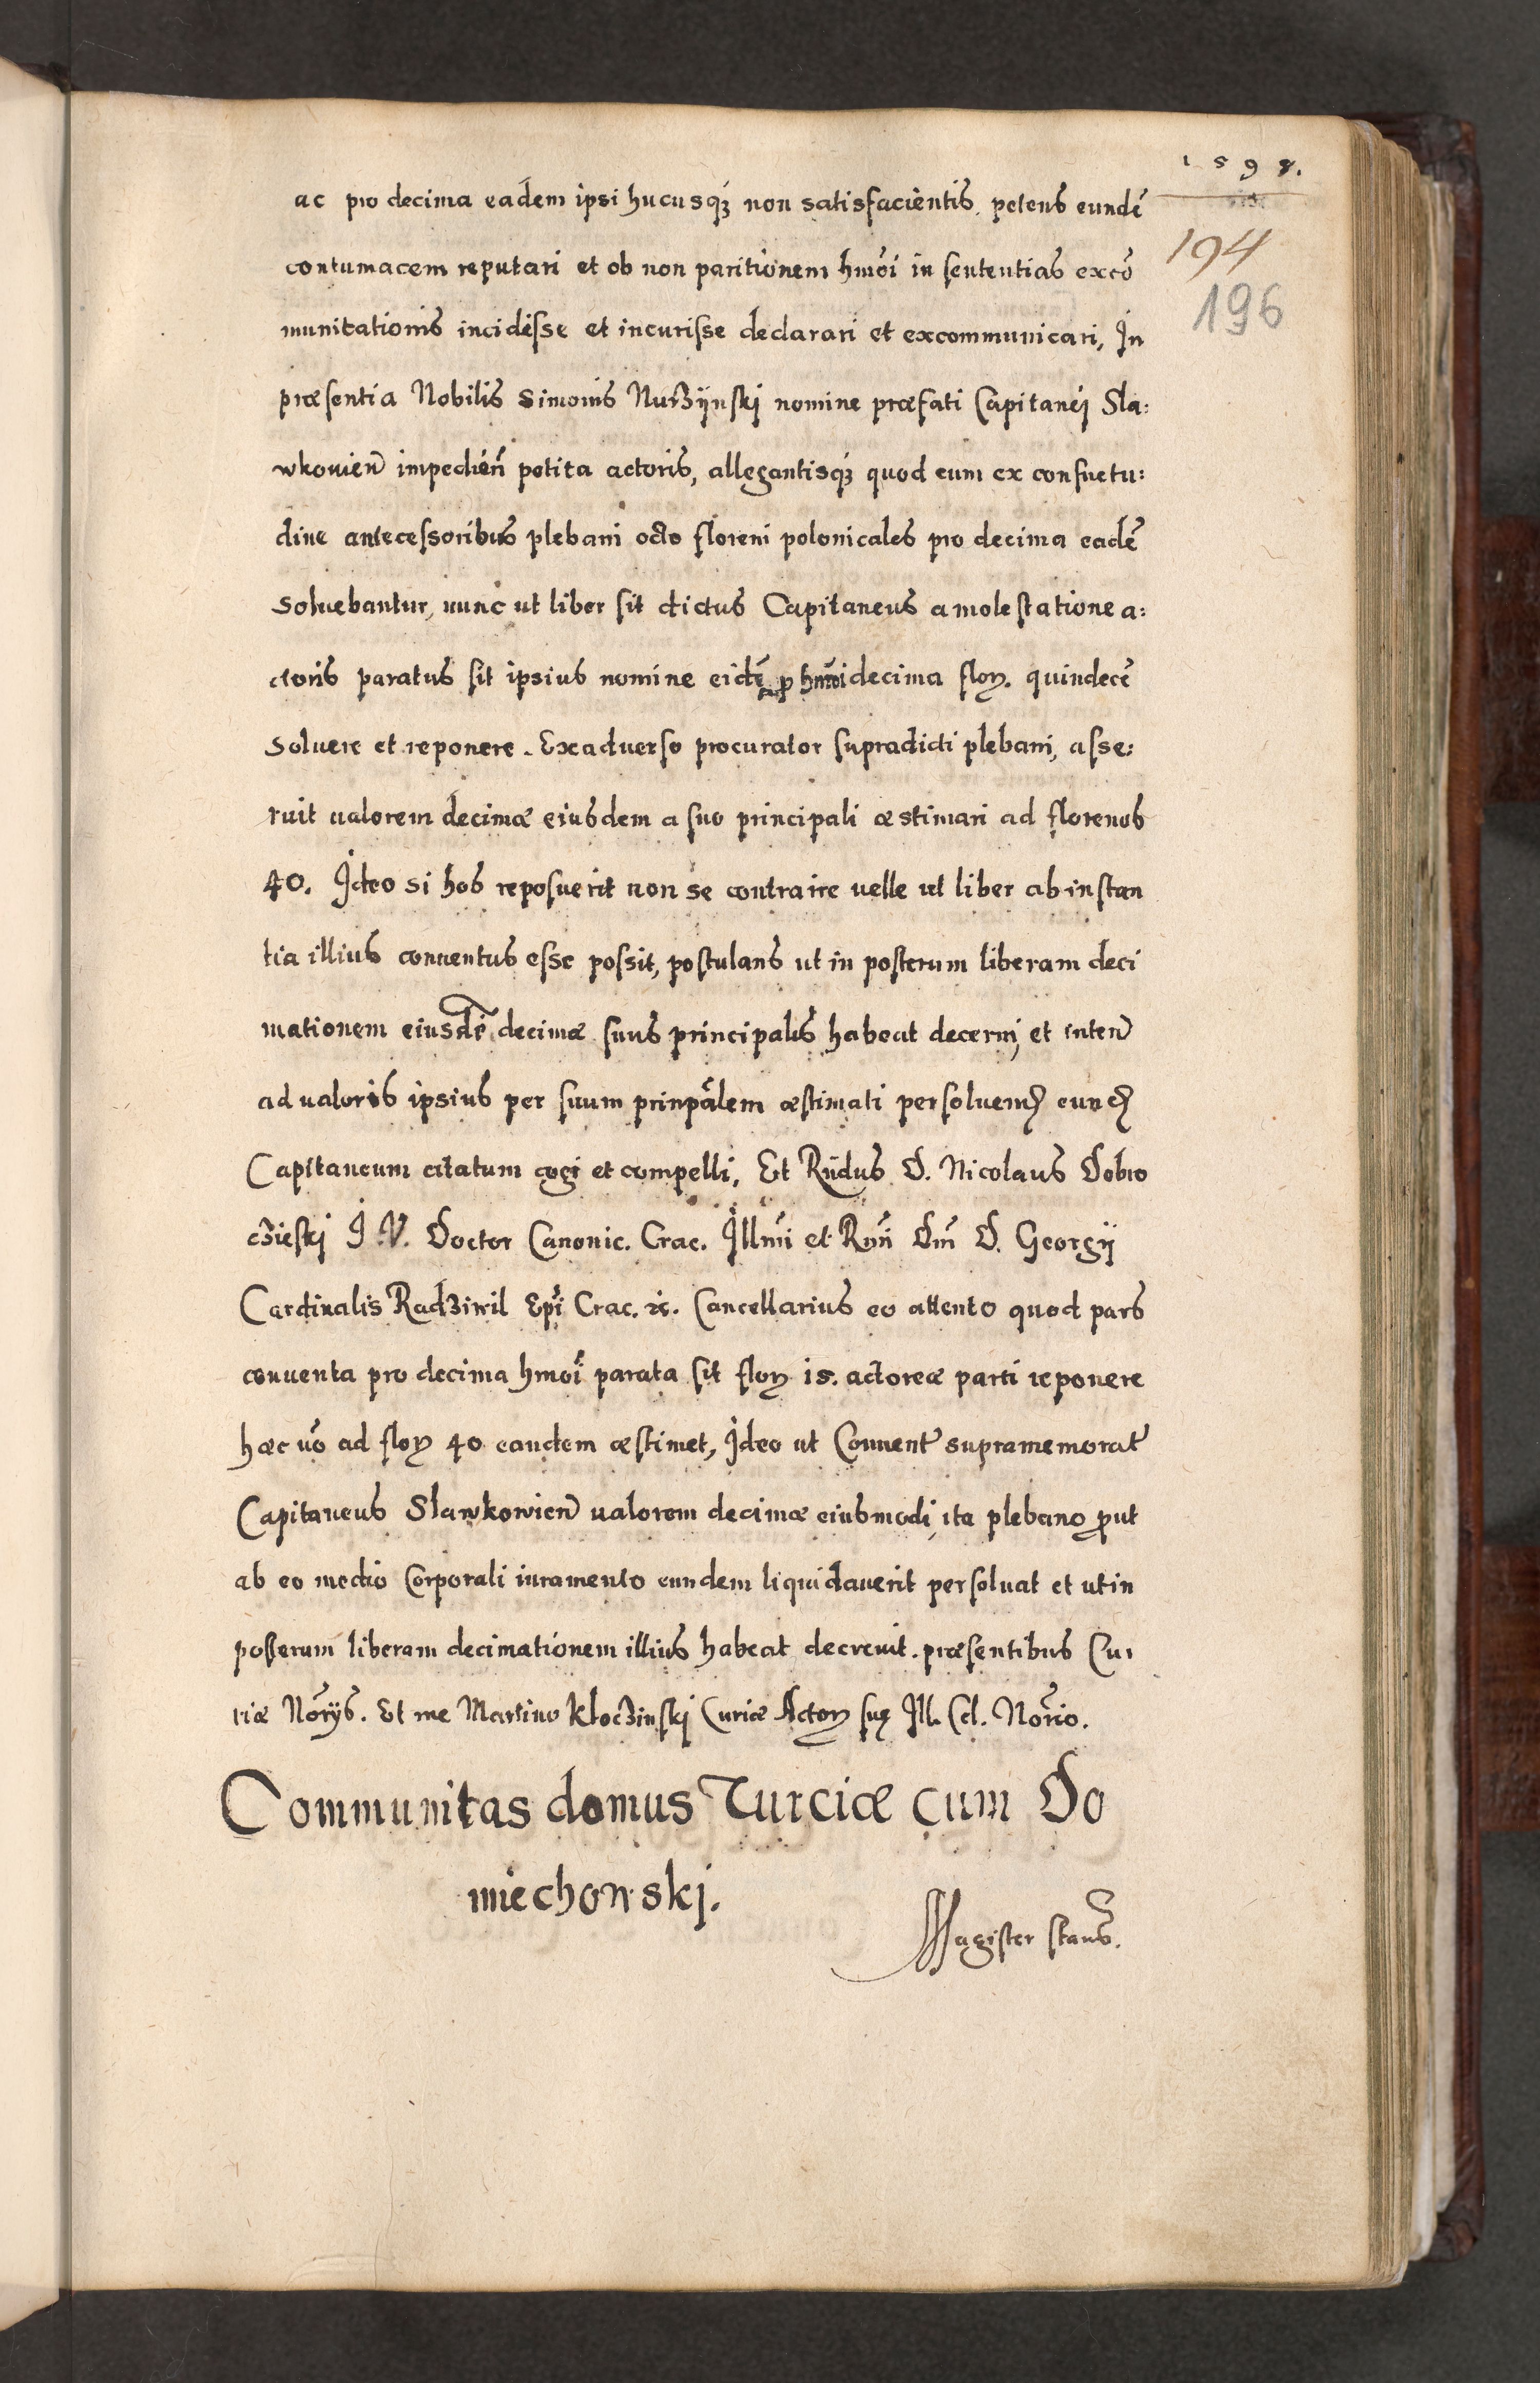 1598.
194
196
ac pro decima eadem ipsi hucusq3 non satisfacientis, petens eundē
contumacem reputari et ob non paritionem hmōi in sententias excō
munitationis incidisse et incurisse declarari et excommunicari, In
præsentia Nobilis Simonis Nurzÿnskj nomine præfati Capitanej Sla:
wkouien̄ impedien̄ petita actoris, allegantisq3 quod eum ex consuetu:
dine antecessoribus plebani octo floreni polonicales pro decima eadē
soluebantur, nunc ut liber sit dictus Capitaneus a molestatione a:
ctoris paratus sit ipsius nomine eidē ꝓ hmōi decima floꝝ. quindecē
soluere et reponere. Ex aduerso procurator supradicti plebani, asse:
ruit ualorem decimæ eiusdem a suo principali æstimari ad florenos
40. Ideo si hos reposuerit non se contraire uelle ut liber ab instan
tia illius conuentus esse possit, postulans ut in posterum liberam deci
mationem eiusdē decimæ suus principalis habeat decerni, et inten̄
ad ualoris ipsius per suum prinpālem æstimati persoluend̄ eund̄
Capitaneum citatum cogi et compelli, Et Rn̄dus D. Nicolaus Dobro
cziesKj I. V. Doctor Canonic. Crac. Illmī et Rmī Dnī D. Georgÿ
Cardinalis Radziwil Epī Crac. &c. Cancellarius eo attento quod pars
conuenta pro decima hmōi parata sit floꝝ 15. actoreæ parti reponere
hæc uō ad floꝝ 40 eandem æstimet, Ideo ut Conuent⁹ supramemorat⁹
Capitaneus Slawkowien̄ ualorem decimæ eiusmodi, ita plebano ꝓut
ab eo medio corporali iuramento eundem liquidauerit persoluat et ut in
posterum liberam decimationem illius habeat decreuit. præsentibus Cu
riæ Norÿs. Et me Martino Kłoczinskj Curiæ Actoꝝ suę Ill. Cel. Norio.
Communitas domus Turciæ cum Do
miechowskj.
Magister Stans.